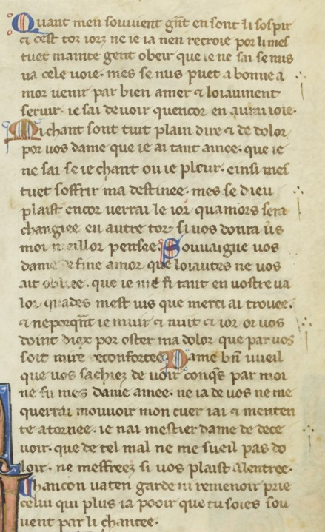 Quant men souuient g͛nt en sont li sospir
⁊ cest toz iorz ne ie ia nen recroie por li mes
tuet mainte gent obeir que ie ne sai se nuns
ua cele uoie. mes se nus puet a bone a
mor uenir par bien amer ⁊ loiaument
seruir. ie sai de uoir quencor en aurai ioie.
Mi chant sont tuit plain dire ⁊ de dolor
por uos dame que ie ai tant amee. que ie
ne sai se ie chant ou ie plour. einsi mes
tuet soffrir ma destinee. mes se dieu
plaist encor uerrai le ior quamors sera
changiee en autre tor. si uos donra u͛s
moi meillor pensee. Souuaigne uos
dame de fine amor que loiautez ne uos
ait obliee. que ie me fi tant en uostre ua
lor quades mest uis que merci ai trouee.
⁊ neporq̄nt ie muir ⁊ nuit ⁊ ior or uos
doint diex por oster ma dolor que par uos
soit mire reconfortee. Dame bn̄ uueil
que uos sachiez de uoir conq͛s par moi
ne fu mes dame amee. ne ia de uos ne me
querrai mouuoir mon cuer i ai ⁊ menten
te atornee. ie nai mestier dame de dece
uoir. que de tel mal ne me sueil pas do
loir. ne meffreez si vos plaist a lentree.
Chancon ua ten garde ni remenoir prie
celui qui plus i a pooir que tu soies sou
uent par li chantee.